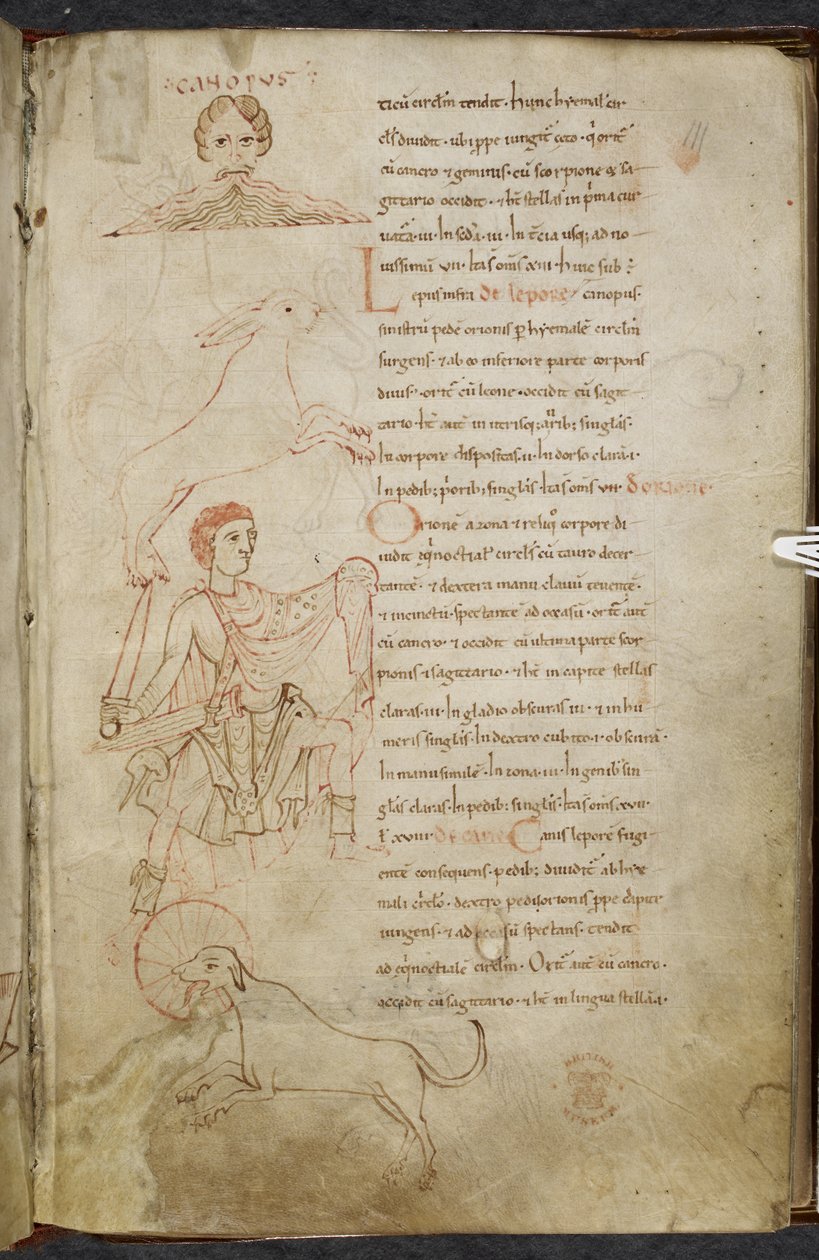 CANOPUS
ticū circl̄m tendit · hunc hyemal' cir
cl's diuidit · ubi ꝓpe iungit̄ ceto · q̇ orit̄
cū cancro ⁊ geminis · cū scorpione ⁊ sa
gittario occidit · ⁊ ht̄ stellas in p̄ma cur
uatā · iii · In sedā · iii · In t̄cia usq; ad no
uissimū vii · Itas̄ om̄s xiii · huic sub
Lepus infra de lepore canopus ·
sinistrū pedē orionis ꝑ hyemalē circl̄m
surgens · ⁊ ab eo inferiore parte corporis
diuis' · orit̄ cū leone · occidit cū sagit
tario · ht̄ aut̄ in utrisq; aurib; singlas ·
In corpore dispositas · ii · In dorso clarā · i ·
In pedib; p̄orib; singlas · Itas̄ om̄s vii · de orione ·
Orionē a zona ⁊ reliq̊ corpore di
uidit eq̇noctial' circl's cū tauro decer
tantē · ⁊ dextera manu clauū tenentē ·
⁊ incinctū · spectantē ad occasū · orit̄ aut̄
cū cancro · ⁊ occidit cū ultima parte scor
pionis ⁊ sagittario · ⁊ ht̄ in capite stellas
claras · iii · In gladio obscuras iii · ⁊ in hu
meris singlas · In dextro cubito · i · obscurā ·
In manu similē · In zona · iii · In genib; sin
glas claras · In pedib; singlas · Itas̄ om̄s xvii ·
ł xviii · de cane Canis leporē fugi
entē consequens · pedib; diuidit̄ ab hye
mali circl̊o · dextro pedi orionis ꝓpe capite
iungens · ⁊ ad occasū spectans · tendit
ad eq̇noctialē circl̄m · Orit̄ aut̄ cū cancro ·
occidit cū sagittario · ⁊ ht̄ in lingua stellā · i ·
BRITISH
MUSEUM